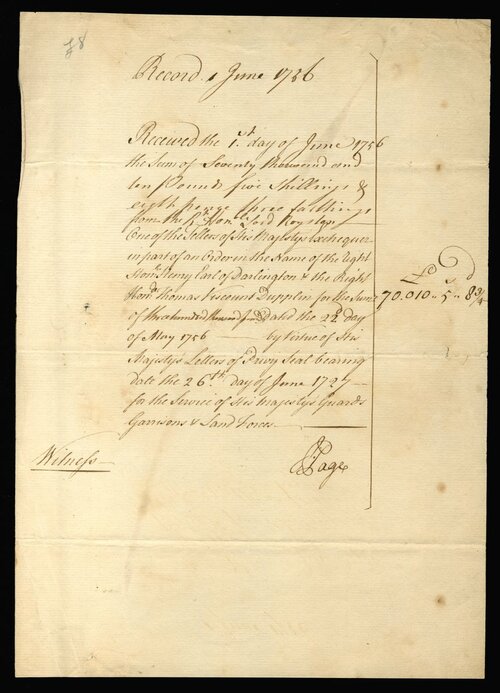 Record. 1 June 1756
Received the 1st. day of June 1756
the Sum of Seventy thousand and
ten Pounds five Shillings &
eight pence three farthings
from the Rt. Honble. Lord Royston
One of the Tellers of His Majestys Exchequer
in part of an Order in the Name of the Right
Honble. Henry Earl of Darlington & the Right
Honble. Thomas Viscount Dupplin for the Sume
of Three hundred thousand Pounds dated the 22d day
of May 1756 by Virtue of His
Majestys Letters of Privy Seal bearing
date the 26th. day of June 1727
for the Service of His Majestys Guards
Garrisons & Land Forces
£ s d
70.010 " 5 " 8 3/4
Witness
Page